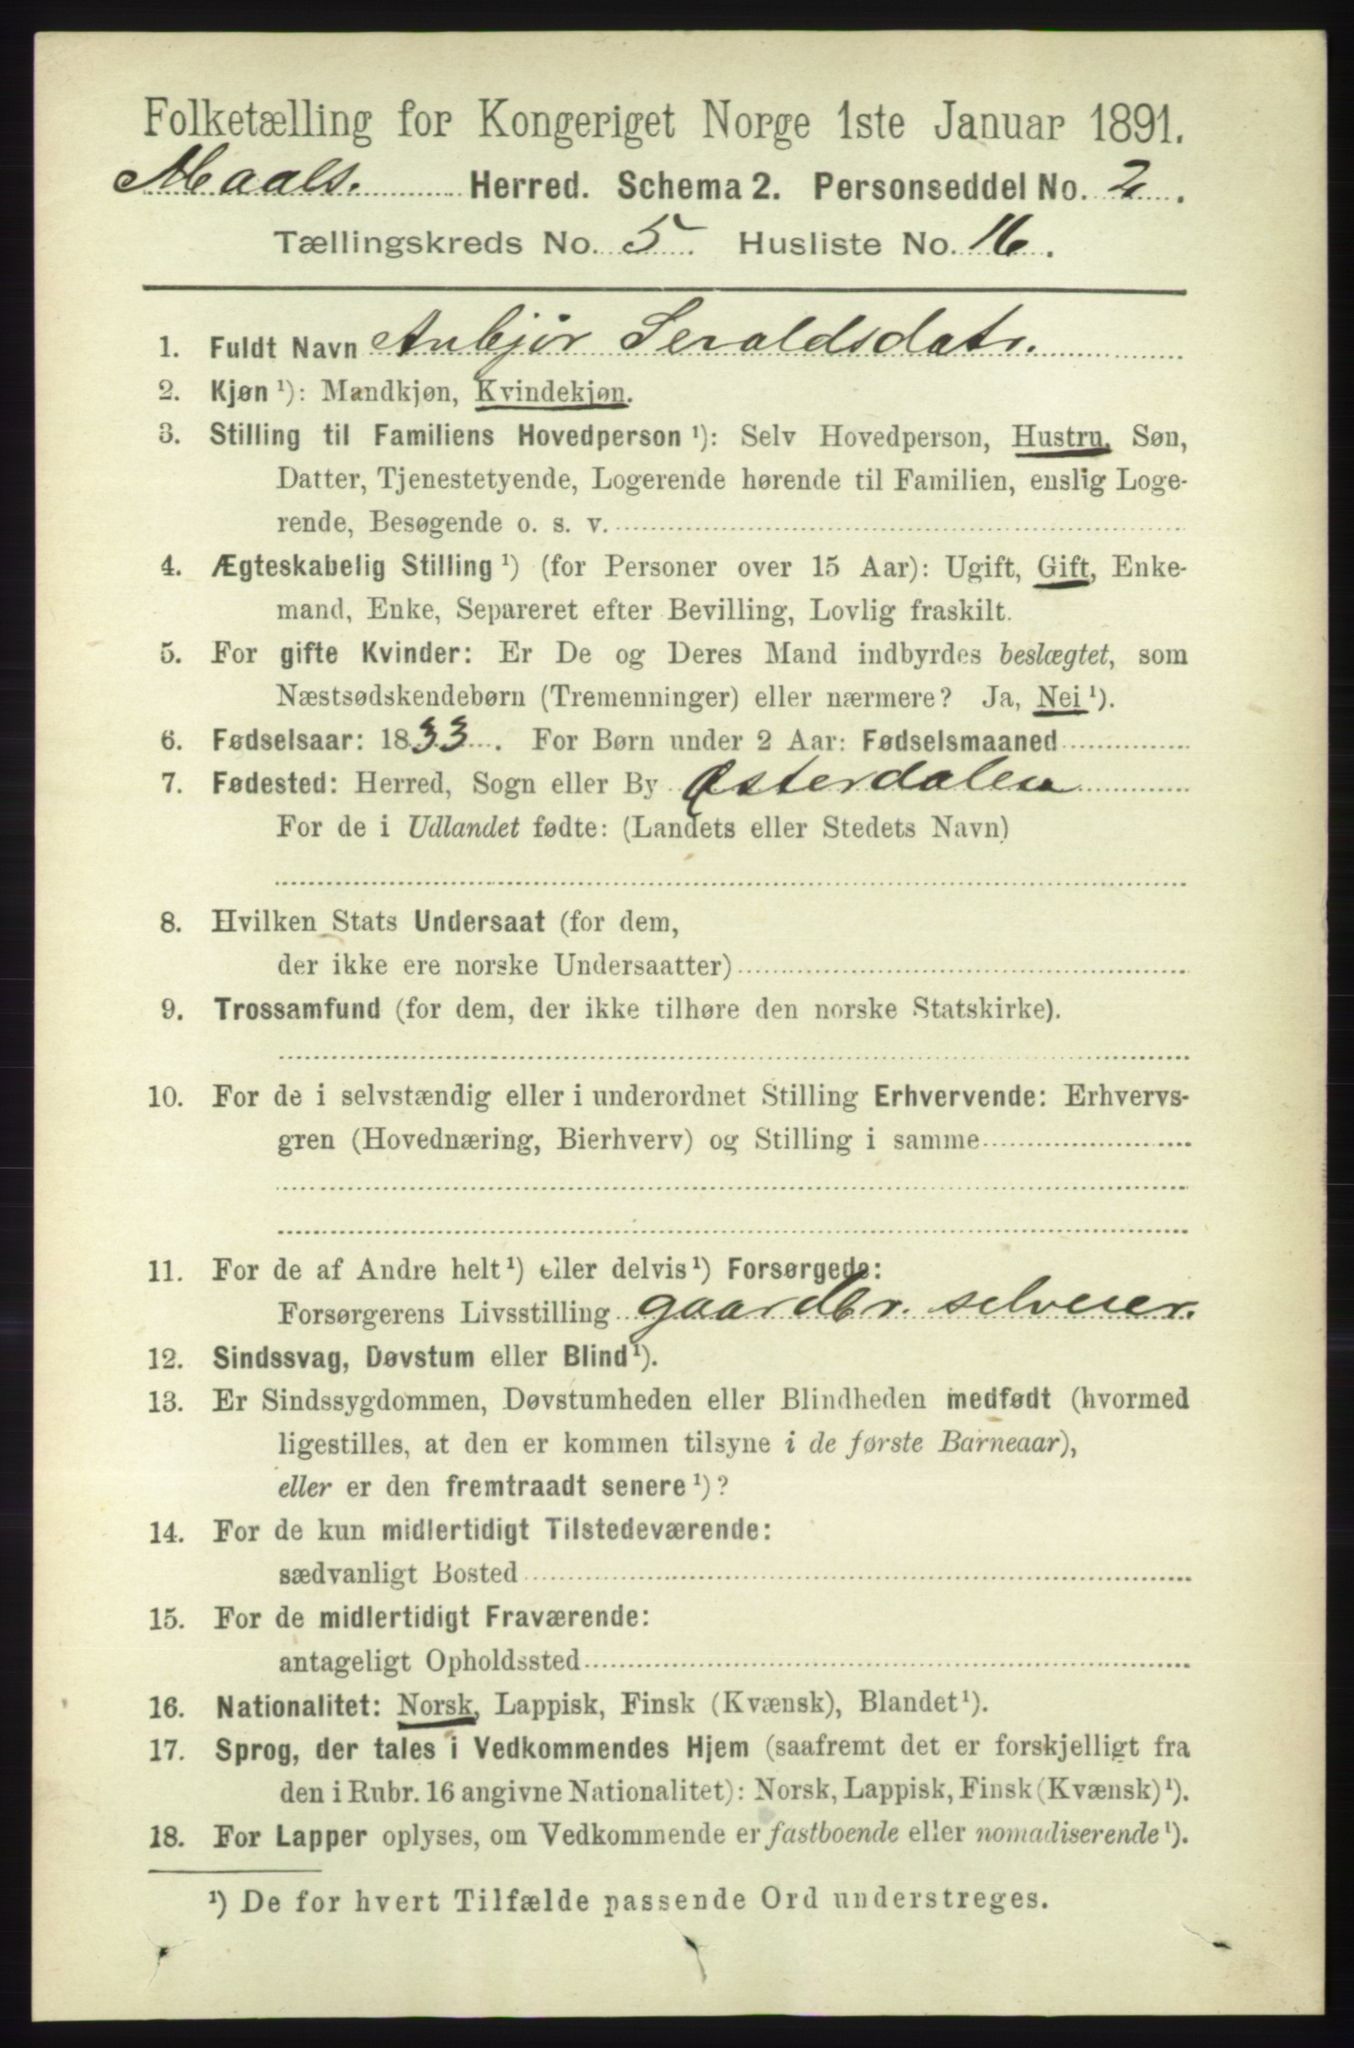 Folketælling for Kongeriget Norge 1ste Januar 1891.
Maals. Herred. Schema 2. Personseddel No. 2.
Tællingskreds No. 5. Husliste No. 16.
1. Fuldt Navn Anbjør Seraldsdatr.
2. Kjøn ¹): Mandkjøn, Kvindekjøn.
3. Stilling til Familiens Hovedperson ¹): Selv Hovedperson, Hustru, Søn,
Datter, Tjenestetyende, Logerende hørende til Familien, enslig Loge-
rende, Besøgende o. s. v.
4. Ægteskabelig Stilling ¹) (for Personer over 15 Aar): Ugift, Gift, Enke-
mand, Enke, Separeret efter Bevilling, Lovlig fraskilt.
5. For gifte Kvinder: Er De og Deres Mand indbyrdes beslægtet, som
Næstsødskendebørn (Tremenninger) eller nærmere? Ja, Nei ¹).
6. Fødselsaar: 1833. For Børn under 2 Aar: Fødselsmaaned
7. Fødested: Herred, Sogn eller By Østerdalen
For de i Udlandet fødte: (Landets eller Stedets Navn)
8. Hvilken Stats Undersaat (for dem,
der ikke ere norske Undersaatter)
9. Trossamfund (for dem, der ikke tilhøre den norske Statskirke).
10. For de i selvstændig eller i underordnet Stilling Erhvervende: Erhvervs-
gren (Hovednæring, Bierhverv) og Stilling i samme
11. For de af Andre helt ¹) eller delvis ¹) Forsørgede:
Forsørgerens Livsstilling gaardbr. selveier.
12. Sindssvag, Døvstum eller Blind ¹).
13. Er Sindssygdommen, Døvstumheden eller Blindheden medfødt (hvormed
ligestilles, at den er kommen tilsyne i de første Barneaar),
eller er den fremtraadt senere ¹)?
14. For de kun midlertidigt Tilstedeværende:
sædvanligt Bosted
15. For de midlertidigt Fraværende:
antageligt Opholdssted
16. Nationalitet: Norsk, Lappisk, Finsk (Kvænsk), Blandet ¹).
17. Sprog, der tales i Vedkommendes Hjem (saafremt det er forskjelligt fra
den i Rubr. 16 angivne Nationalitet): Norsk, Lappisk, Finsk (Kvænsk) ¹).
18. For Lapper oplyses, om Vedkommende er fastboende eller nomadiserende ¹).
¹) De for hvert Tilfælde passende Ord understreges.